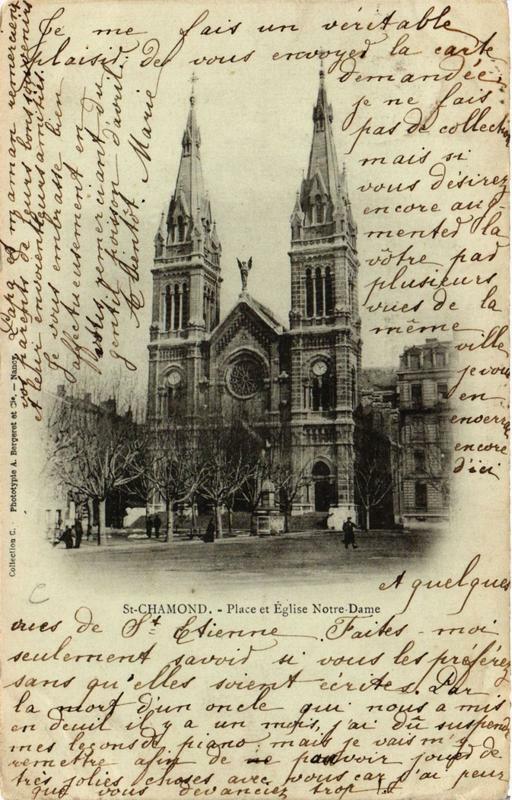 Je me fais un véritable
plaisir de vous envoyer la carte
demandée,
je ne fais
pas de collection
mais si
vous désirez
encore aug-
menter la
vôtre par
plusieurs
vues de la
même ville
je vous
en
enverrai
encore
d'ici
A quelques
vues de St Etienne. Faites-moi
seulement savoir si vous les préférez
sans qu'elles soient écrites. Par
la mort d'un oncle qui nous a mis
en deuil il y a un mois, j'ai dû suspendre
mes leçons de piano; mais je vais m'y
remettre afin de pouvoir jouer de
très jolies choses avec vous car j'ai peur
que vous devanciez trop
Papa et maman remercient
vos parents de leurs bons souvenirs
et leur envoient leurs amitiés.
Je vous embrasse bien
affectueusement en
vous remerciant du
gentil poisson d'avril.
A bientôt. Marie
St-CHAMOND. - Place et Église Notre-Dame
Collection C. Phototypie A. Bergeret et Cie. - Nancy